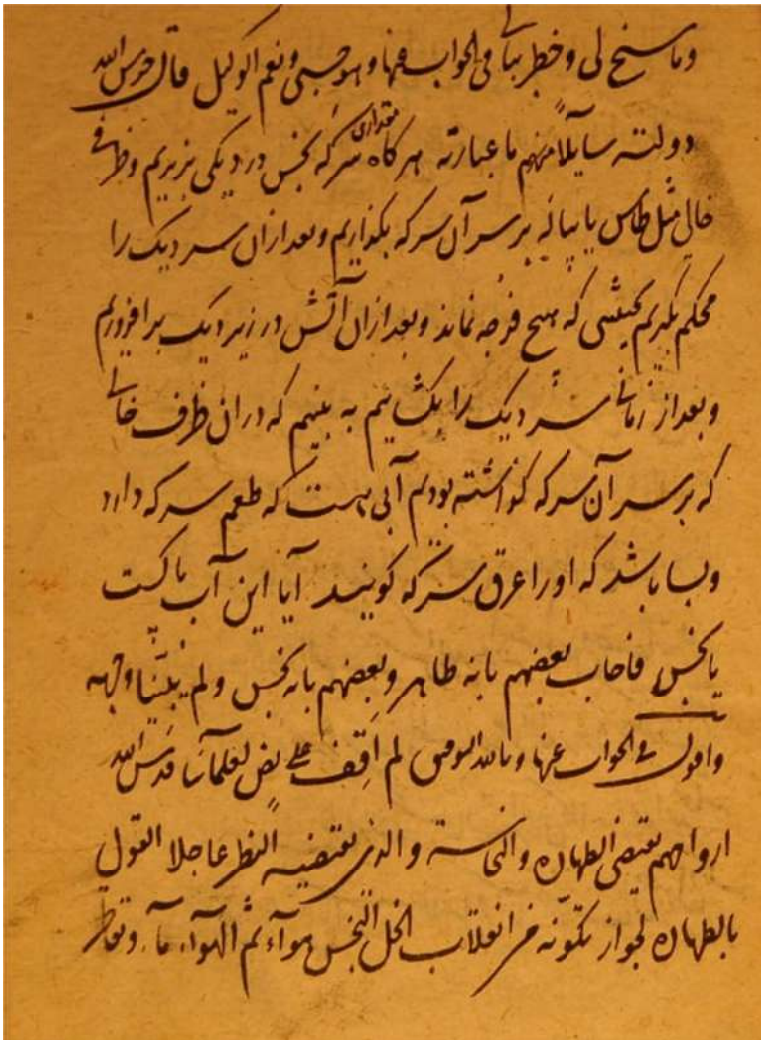 وما سنح لی وخطر ببالی فی الجواب عنها وهو حسبی ونعم الوکیل قال حرس الله
دولته سایلا منهم ما عبارته هر کاه مقداری سرکه نجس در دیکی بریزیم وظرفی
خالی مثل طاس یا پیاله بر سر آن سرکه بکذاریم وبعد ازان سر دیک را
محکم بکیریم بحیثیتی که هیچ فرجه نماند وبعد ازان آتش در زیر دیک برافروزیم
وبعد از زمانی سر دیک را بکشائیم به بینیم که دران ظرف خالی
که بر سر آن سرکه کذاشته بودیم آبی هست که طعم سرکه دارد
وبسا باشد که اورا عرق سرکه کویند آیا این آب پاکست
یا نجس فاجاب بعضهم بانه طاهر وبعضهم بانه نجس ولم یبینا وجهه
واقول فی الجواب عنها وبالله التوفیق لم اقف علی نص لعلمآئنا قدس الله
ارواحهم یقتضی الطهارة والنجاسة والذی یقتضیه النظر عاجلا القول
بالطهارة لجواز تکونه من انقلاب الخل النجس هوآء ثم الهوآء مآء وتقاطر